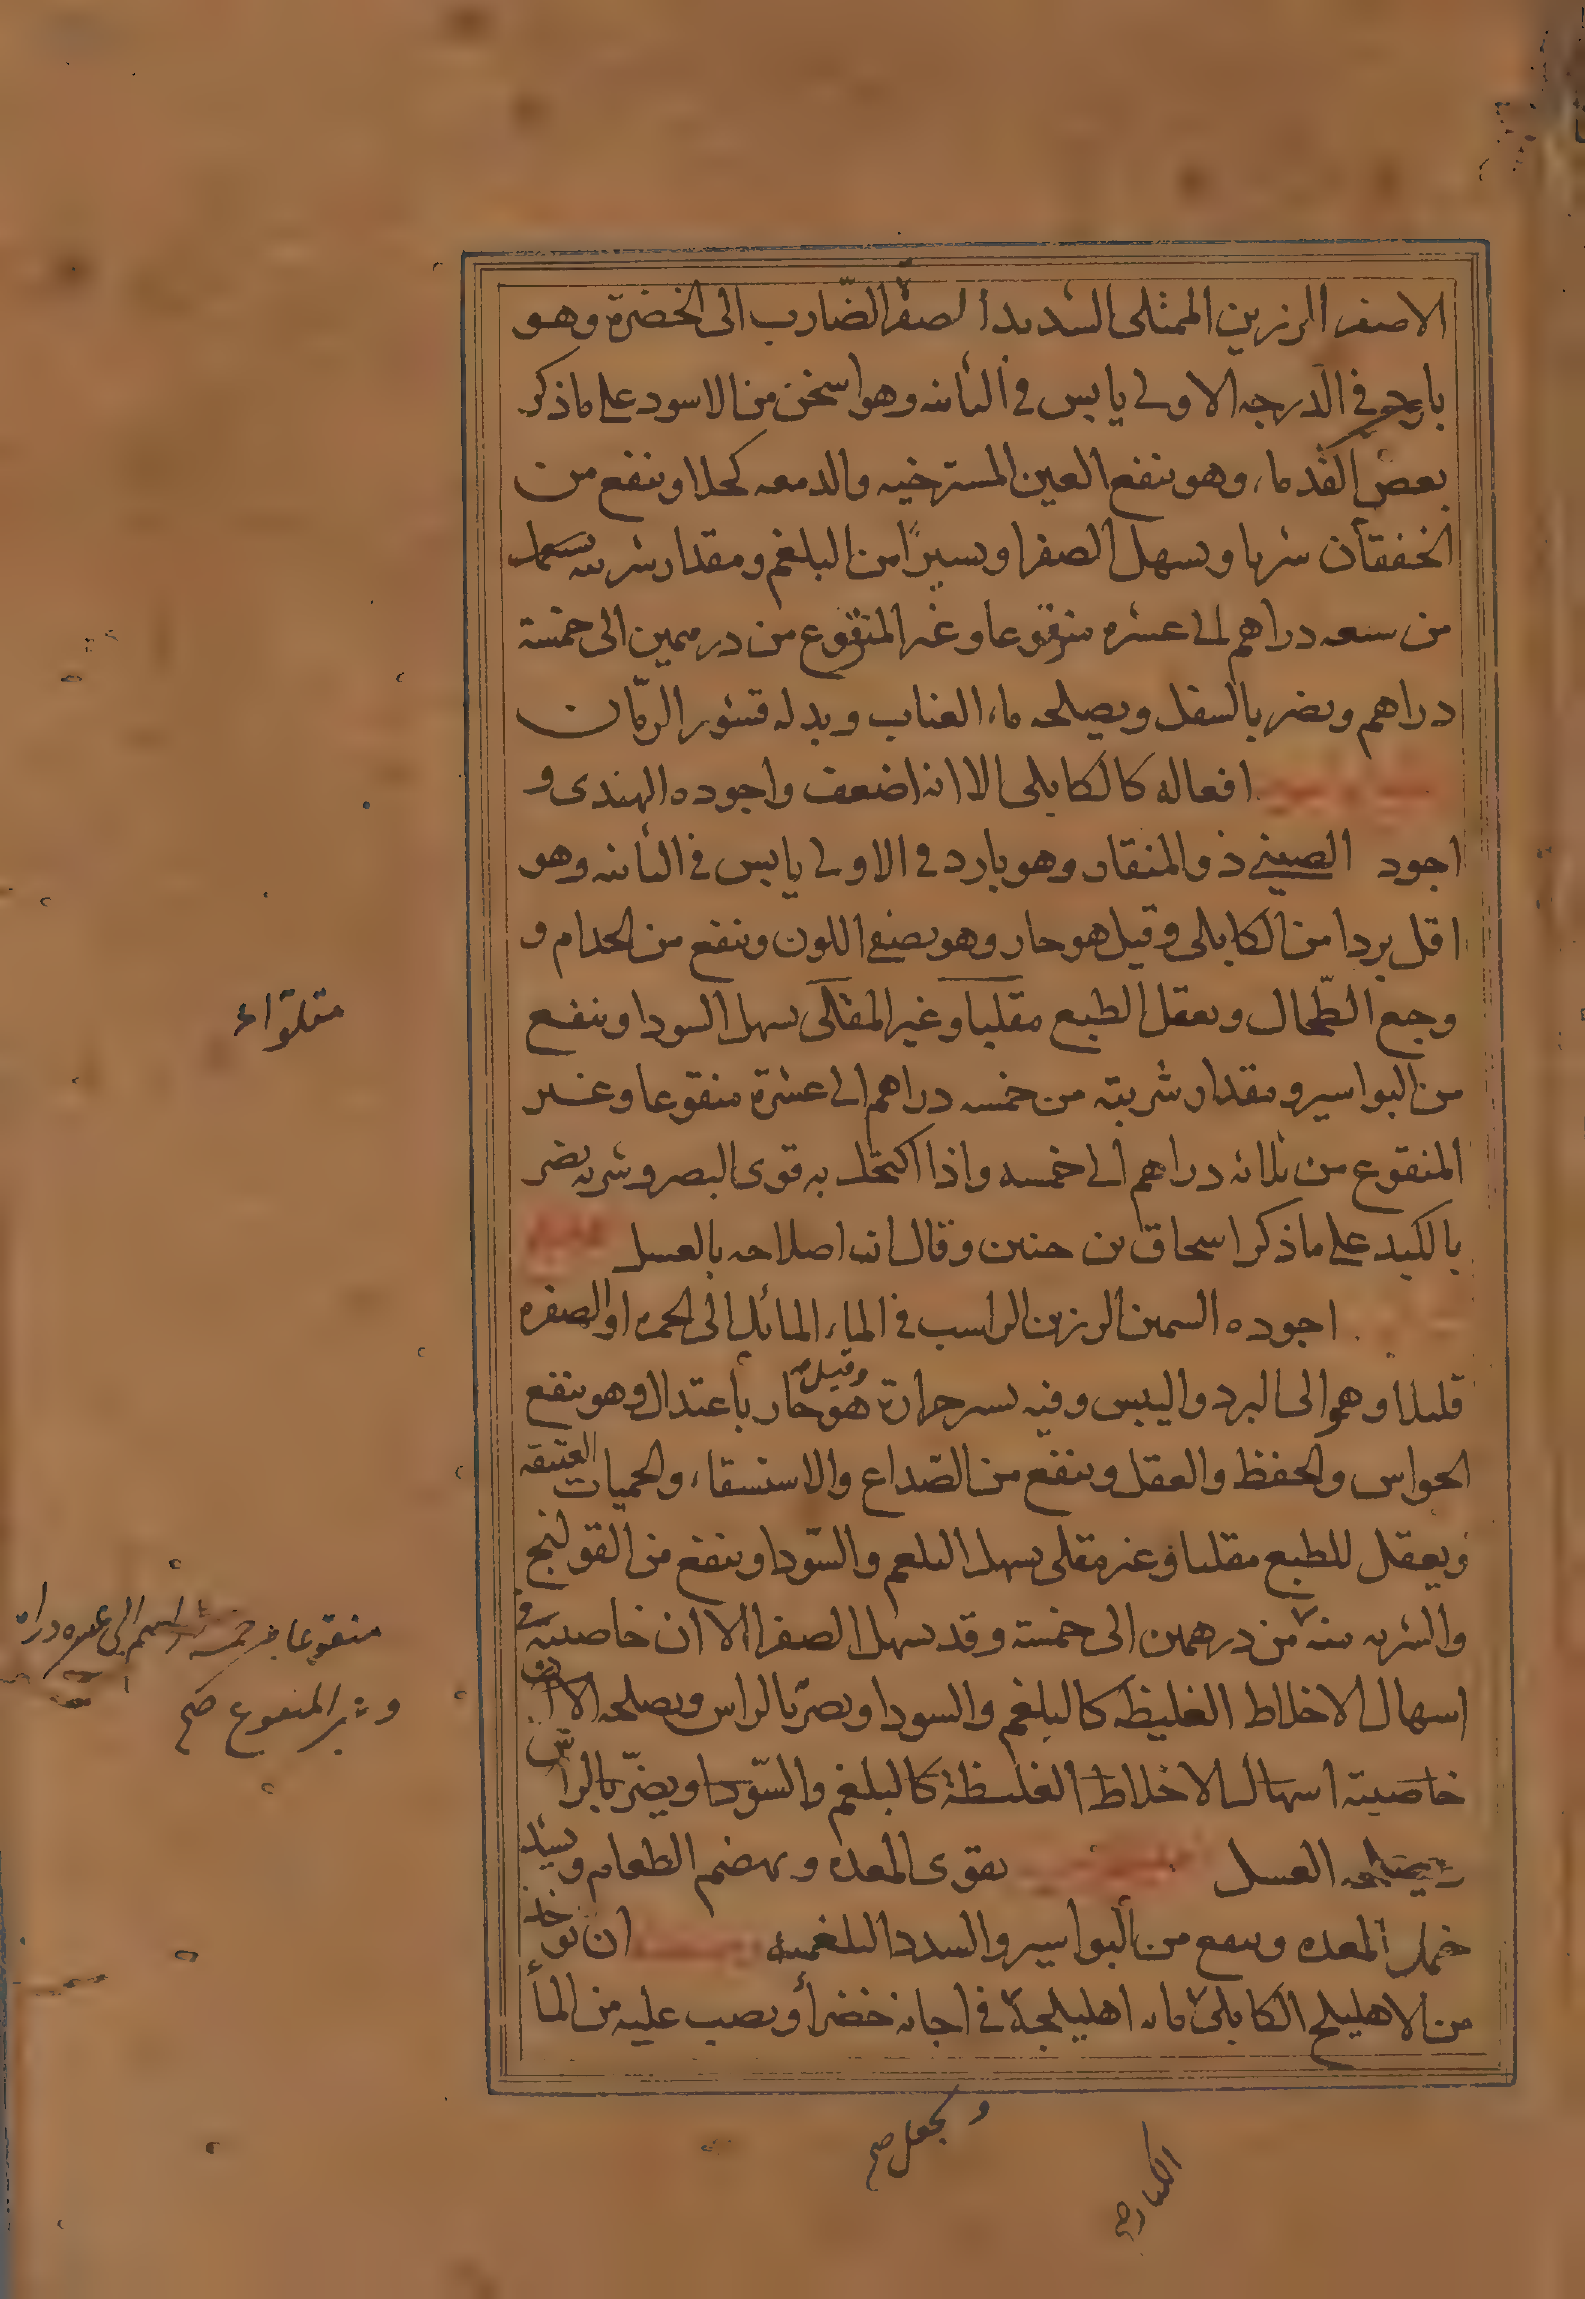 الاصفر الرزين الممتلى الشديد الصفرا الضّارب الى الخضرة وهو
بارد فى الدرجه الاولى يابس فى الثانيه وهو اسخن من الاسود على ما ذكر
بعض القدماء وهو ينفع العين المسترخيه والدمعه كحلا وينفع من
الخفقان شربا ويسهل الصفرا ويسيرًا من البلغم ومقدار شربته
من سبعه دراهم الى عشره منقوعا وغير المنقوع من درهمين الى خمسة
دراهم ويضر بالسفل ويصلحه ماء العناب وبدله قشور الرمّان
افعاله كالكابلى الا انه اضعف واجوده الهندى و
اجود الصينى ذو المنقار وهو بارد فى الاولى يابس فى الثانيه وهو
اقل بردا من الكابلى وقيل هو حار وهو يصفى اللون وينفع من الجدام و
وجع الطّحال ويعقل الطبع مقليا وغير المقلى يسهل السودا وينفع
من البواسير ومقدار شربته من خمسه دراهم الى عشرة منقوعا وغير
المنقوع من ثلاثه دراهم الى خمسه واذا اكتحل به قوى البصر وشربه يضر
بالكبد على ما ذكر اسحاق بن حنين وقال انه اصلاحه بالعسل
اجوده السمين الرزين الراسب فى الماء المائل الى الحمره او الصفره
قليلا وهو الى البرد واليبس وفيه يسير حرارة وقيل هو حار باعتدال وهو ينفع
الحواس والحفظ والعقل وينفع من الصّداع والاستسقاء والحميات العتيقه
ويعقل للطبع مقليا وغير مقلى يسهل البلغم والسّودا وينفع من القولنج
والشربه منه من درهمين الى خمسة وقد يسهل الصفرا الا ان خاصيته فى
اسهال الاخلاط الغليظه كالبلغم والسودا ويضرّ بالراس ويصلحه الا ان
خاصيته اسهال الاخلاط الغليظة كالبلغم والسّودا ويضرّ بالراس
ويصلحه العسل يقوى المعده ويهضم الطعام ويشد
خمل المعده وينفع من البواسير والسدد البلغميه ان يوخذ
من الاهليلج الكابلى مايه اهليلجة فى اجانه خضرا ويصب عليه من الما
مقلوا
منقوعا من خمسه دراهم الى عشره دراهم
وغير المنقوع صح
ويجعل صح
الكبار